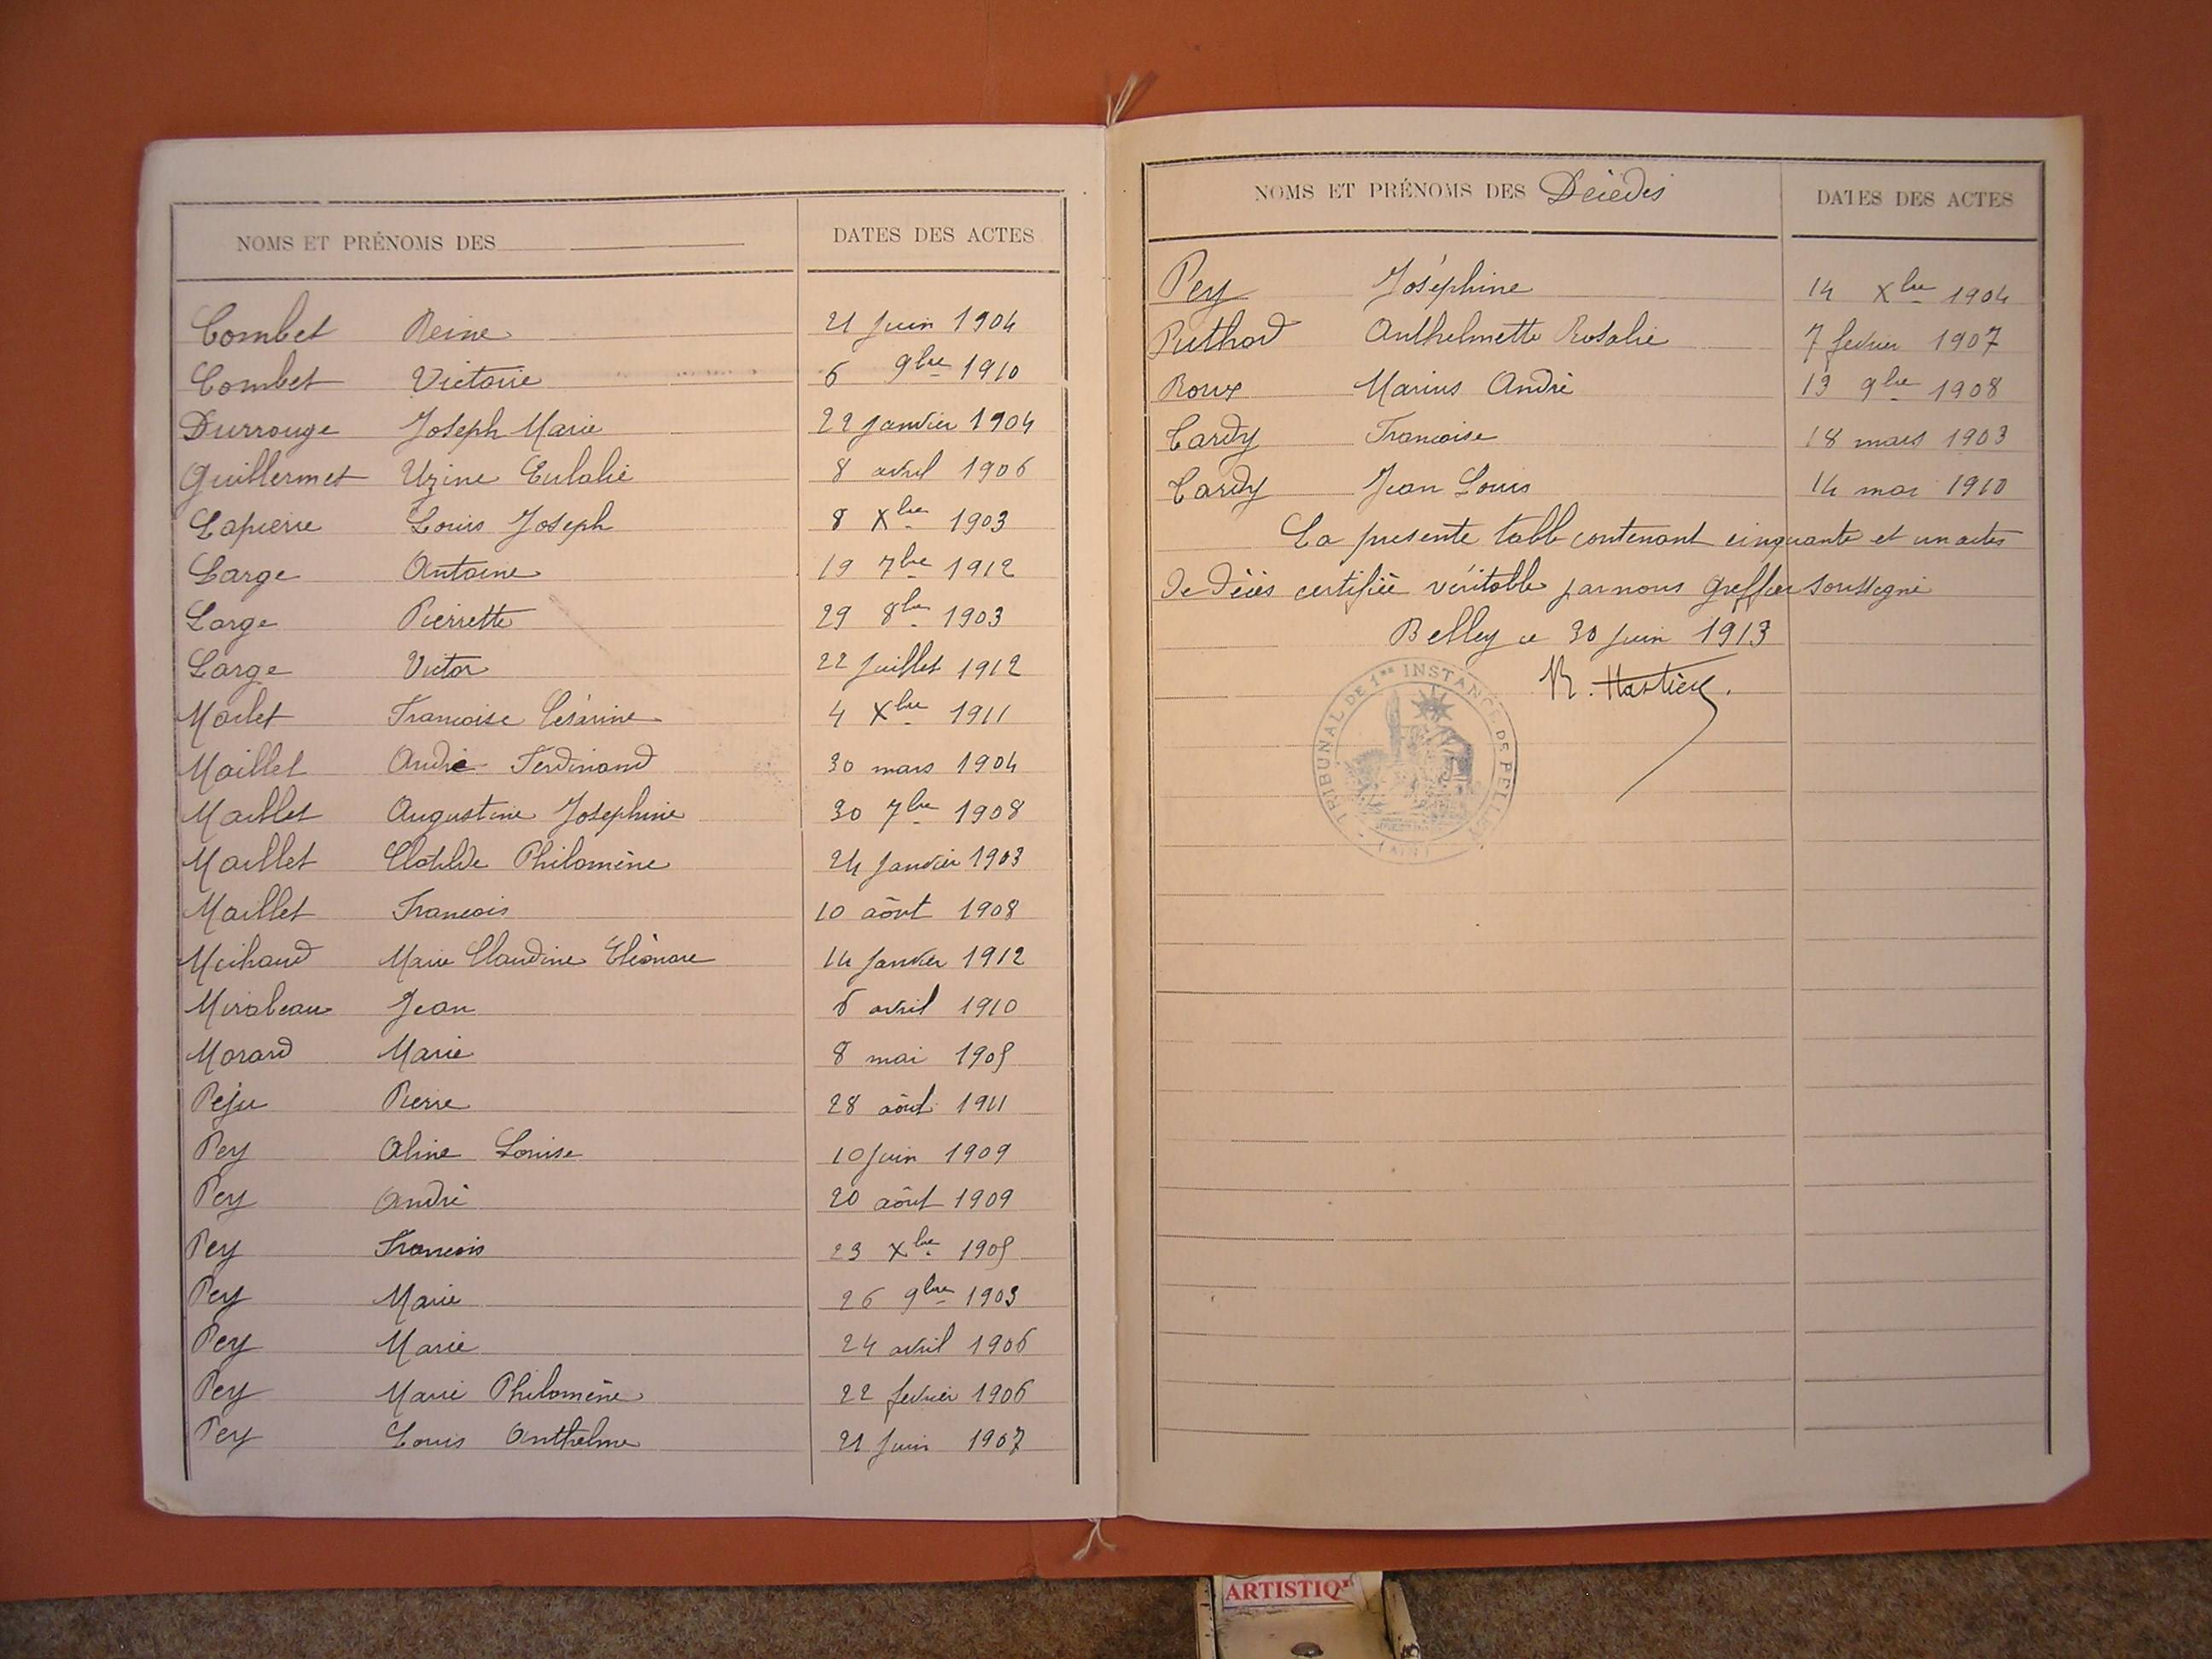 NOMS ET PRÉNOMS DES DATES DES ACTES
Combet Reine 21 Juin 1904
Combet Victorie 6 9bre 1910
Durrouge Joseph Marie 22 Janvier 1904
Guillermet Uzine Eulalie 8 avril 1906
Lapierre Louis Joseph 8 Xbre 1903
Large Antoine 19 7bre 1912
Large Pierrette 29 8bre 1903
Large Victor 22 Juillet 1912
Maclet Francoise Césarine 4 Xbre 1911
Maillet André Ferdinand 30 mars 1904
Maillet Augustine Josephine 30 7bre 1908
Maillet Clotilde Philomène 24 Janvier 1903
Maillet Francois 10 aôut 1908
Michaud Marie Claudine Eléonore 14 Janvier 1912
Mirabeau Jean 6 avril 1910
Morard Marie 8 mai 1905
Peju Pierre 28 aôut 1911
Pey Aline Louise 10 Juin 1909
Pey André 20 aôut 1909
Pey Francois 23 Xbre 1905
Pey Marie 26 9bre 1903
Pey Marie 24 avril 1906
Pey Marie Philomène 22 fevrier 1906
Pey Louis Anthelme 21 Juin 1907
NOMS ET PRÉNOMS DES Décédés DATES DES ACTES
Pey Joséphine 14 Xbre 1904
Puthod Anthelmette Rosalie 7 fevrier 1907
Roux Marius André 13 9bre 1908
Tardy Francoise 18 mars 1903
Tardy Jean Louis 14 mai 1910
La presente table contenant cinquante et un actes
de décès certifiée véritable par nous Greffier soussigné
Belley ce 30 Juin 1913
TRIBUNAL DE 1re INSTANCE DE BELLEY
(AIN)
ARTISTIQ